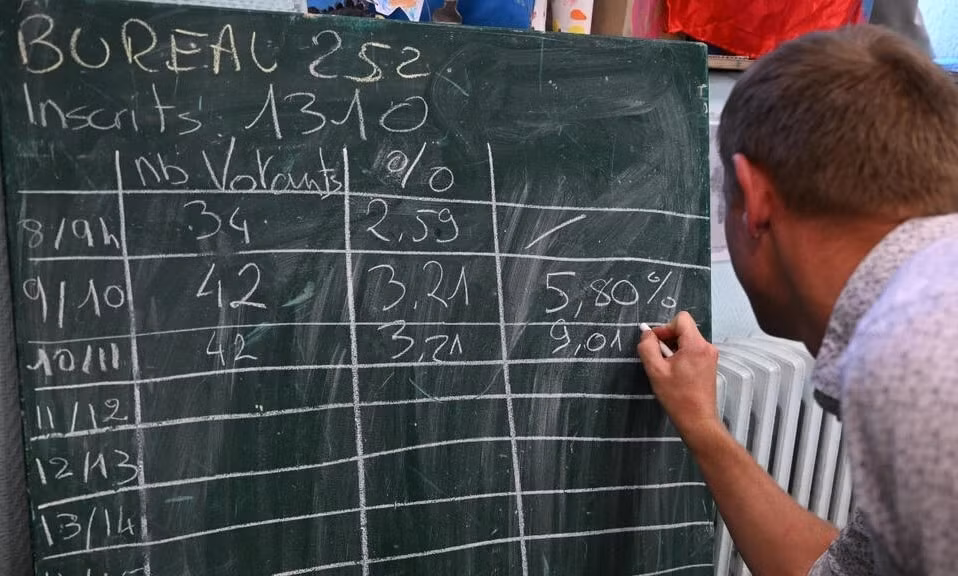 BUREAU 252
Inscrits. 1310
nb Votants %
8/9h 34 2,59 /
9/10 42 3,21 5,80%
10/11 42 3,21 9,01
11/12
12/13
13/14